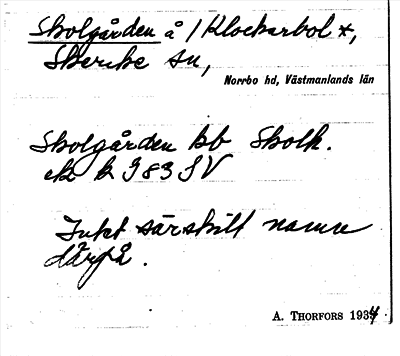 Skolgården å /Klockarbol *,
Skerike sn,
Norrbo hd, Västmanlands län
Skolgården bb Skolh.
ek k 983 SV
Intet särskilt namn
därpå.
A. THORFORS 1934